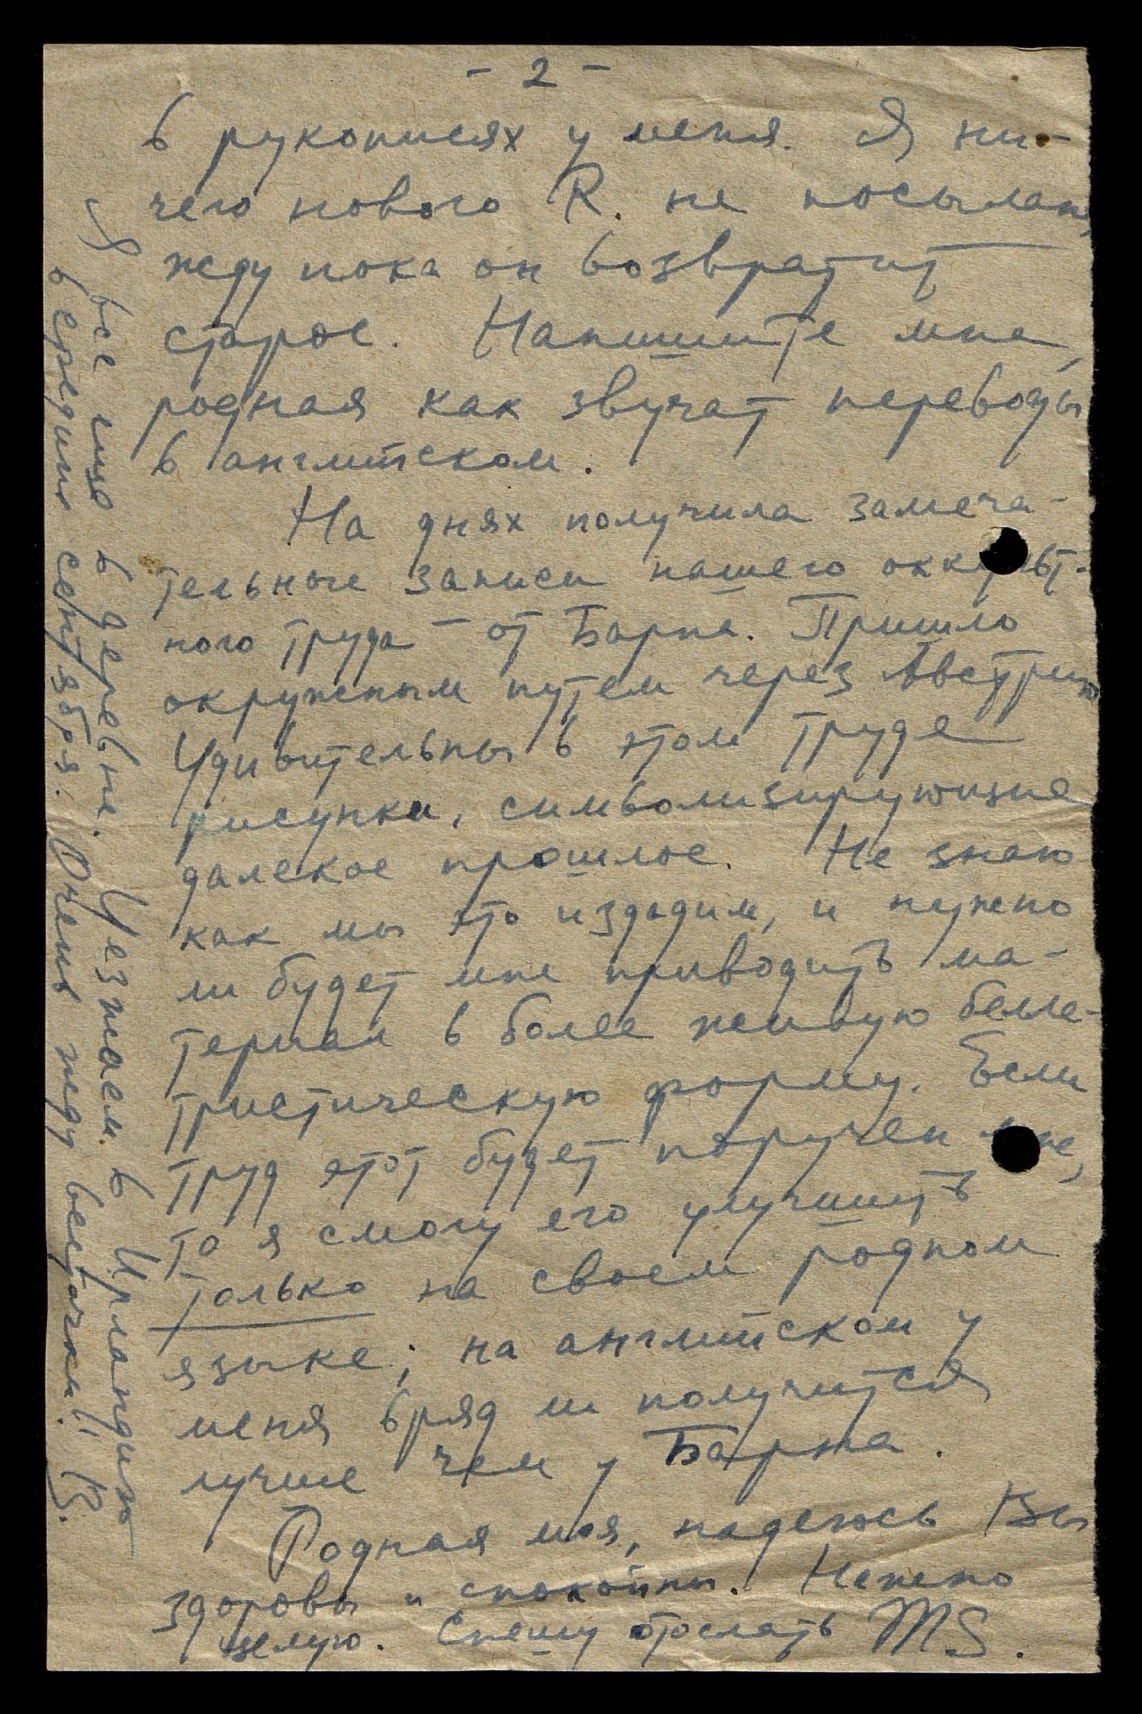 - 2 -
в рукописях у меня. Я ни-
чего нового R. не посылаю,
жду пока он возвратит
старое. Напишите мне,
родная как звучат переводы
в английском.
На днях получила замеча-
тельные записи нашего оккульт-
ного труда - от Барна. Пришло
окружным путем через Австрию
Удивительны в этом труде
рисунки, символизирующие
далекое прошлое. Не знаю
как мы это издадим, и нужно
ли будет мне приводить ма-
териал в более живую белле-
тристическую форму. Если
труд этот будет поручен мне,
то я смогу его улучшить
только на своем родном
языке; на английском у
меня вряд ли получится
лучше чем у Барна.
Родная моя, надеюсь Вы
здоровы и спокойны. Нежно
целую. Спешу отослать MS.
Я все еще в деревне. Уезжаем в Ирландию
в середине сентября. Очень жду весточки! В.